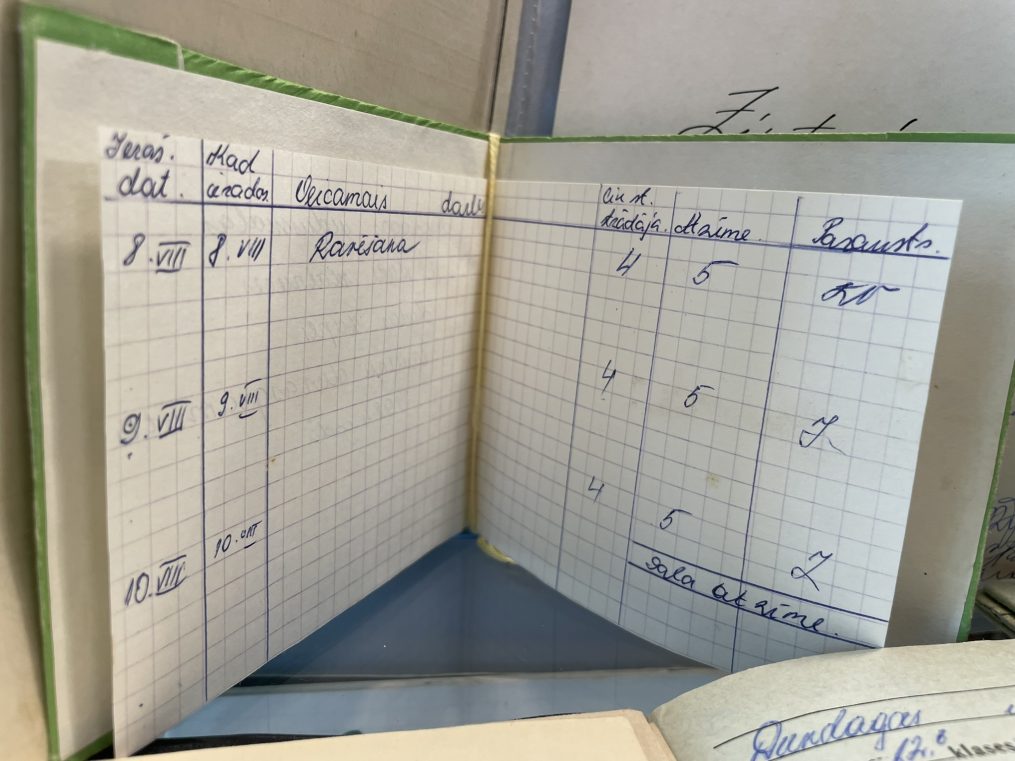 Ieraš. dat.
Kad izados.
Veicamais darbs
Cik st. strādāja.
Atzīme.
Paraksts.
8. VIII 8. VIII Ravēšana 4 5
9. VIII 9. VIII 4 5
10. VIII 10. VIII 4 5
gala atzīme.
Dundagas
12. b klases